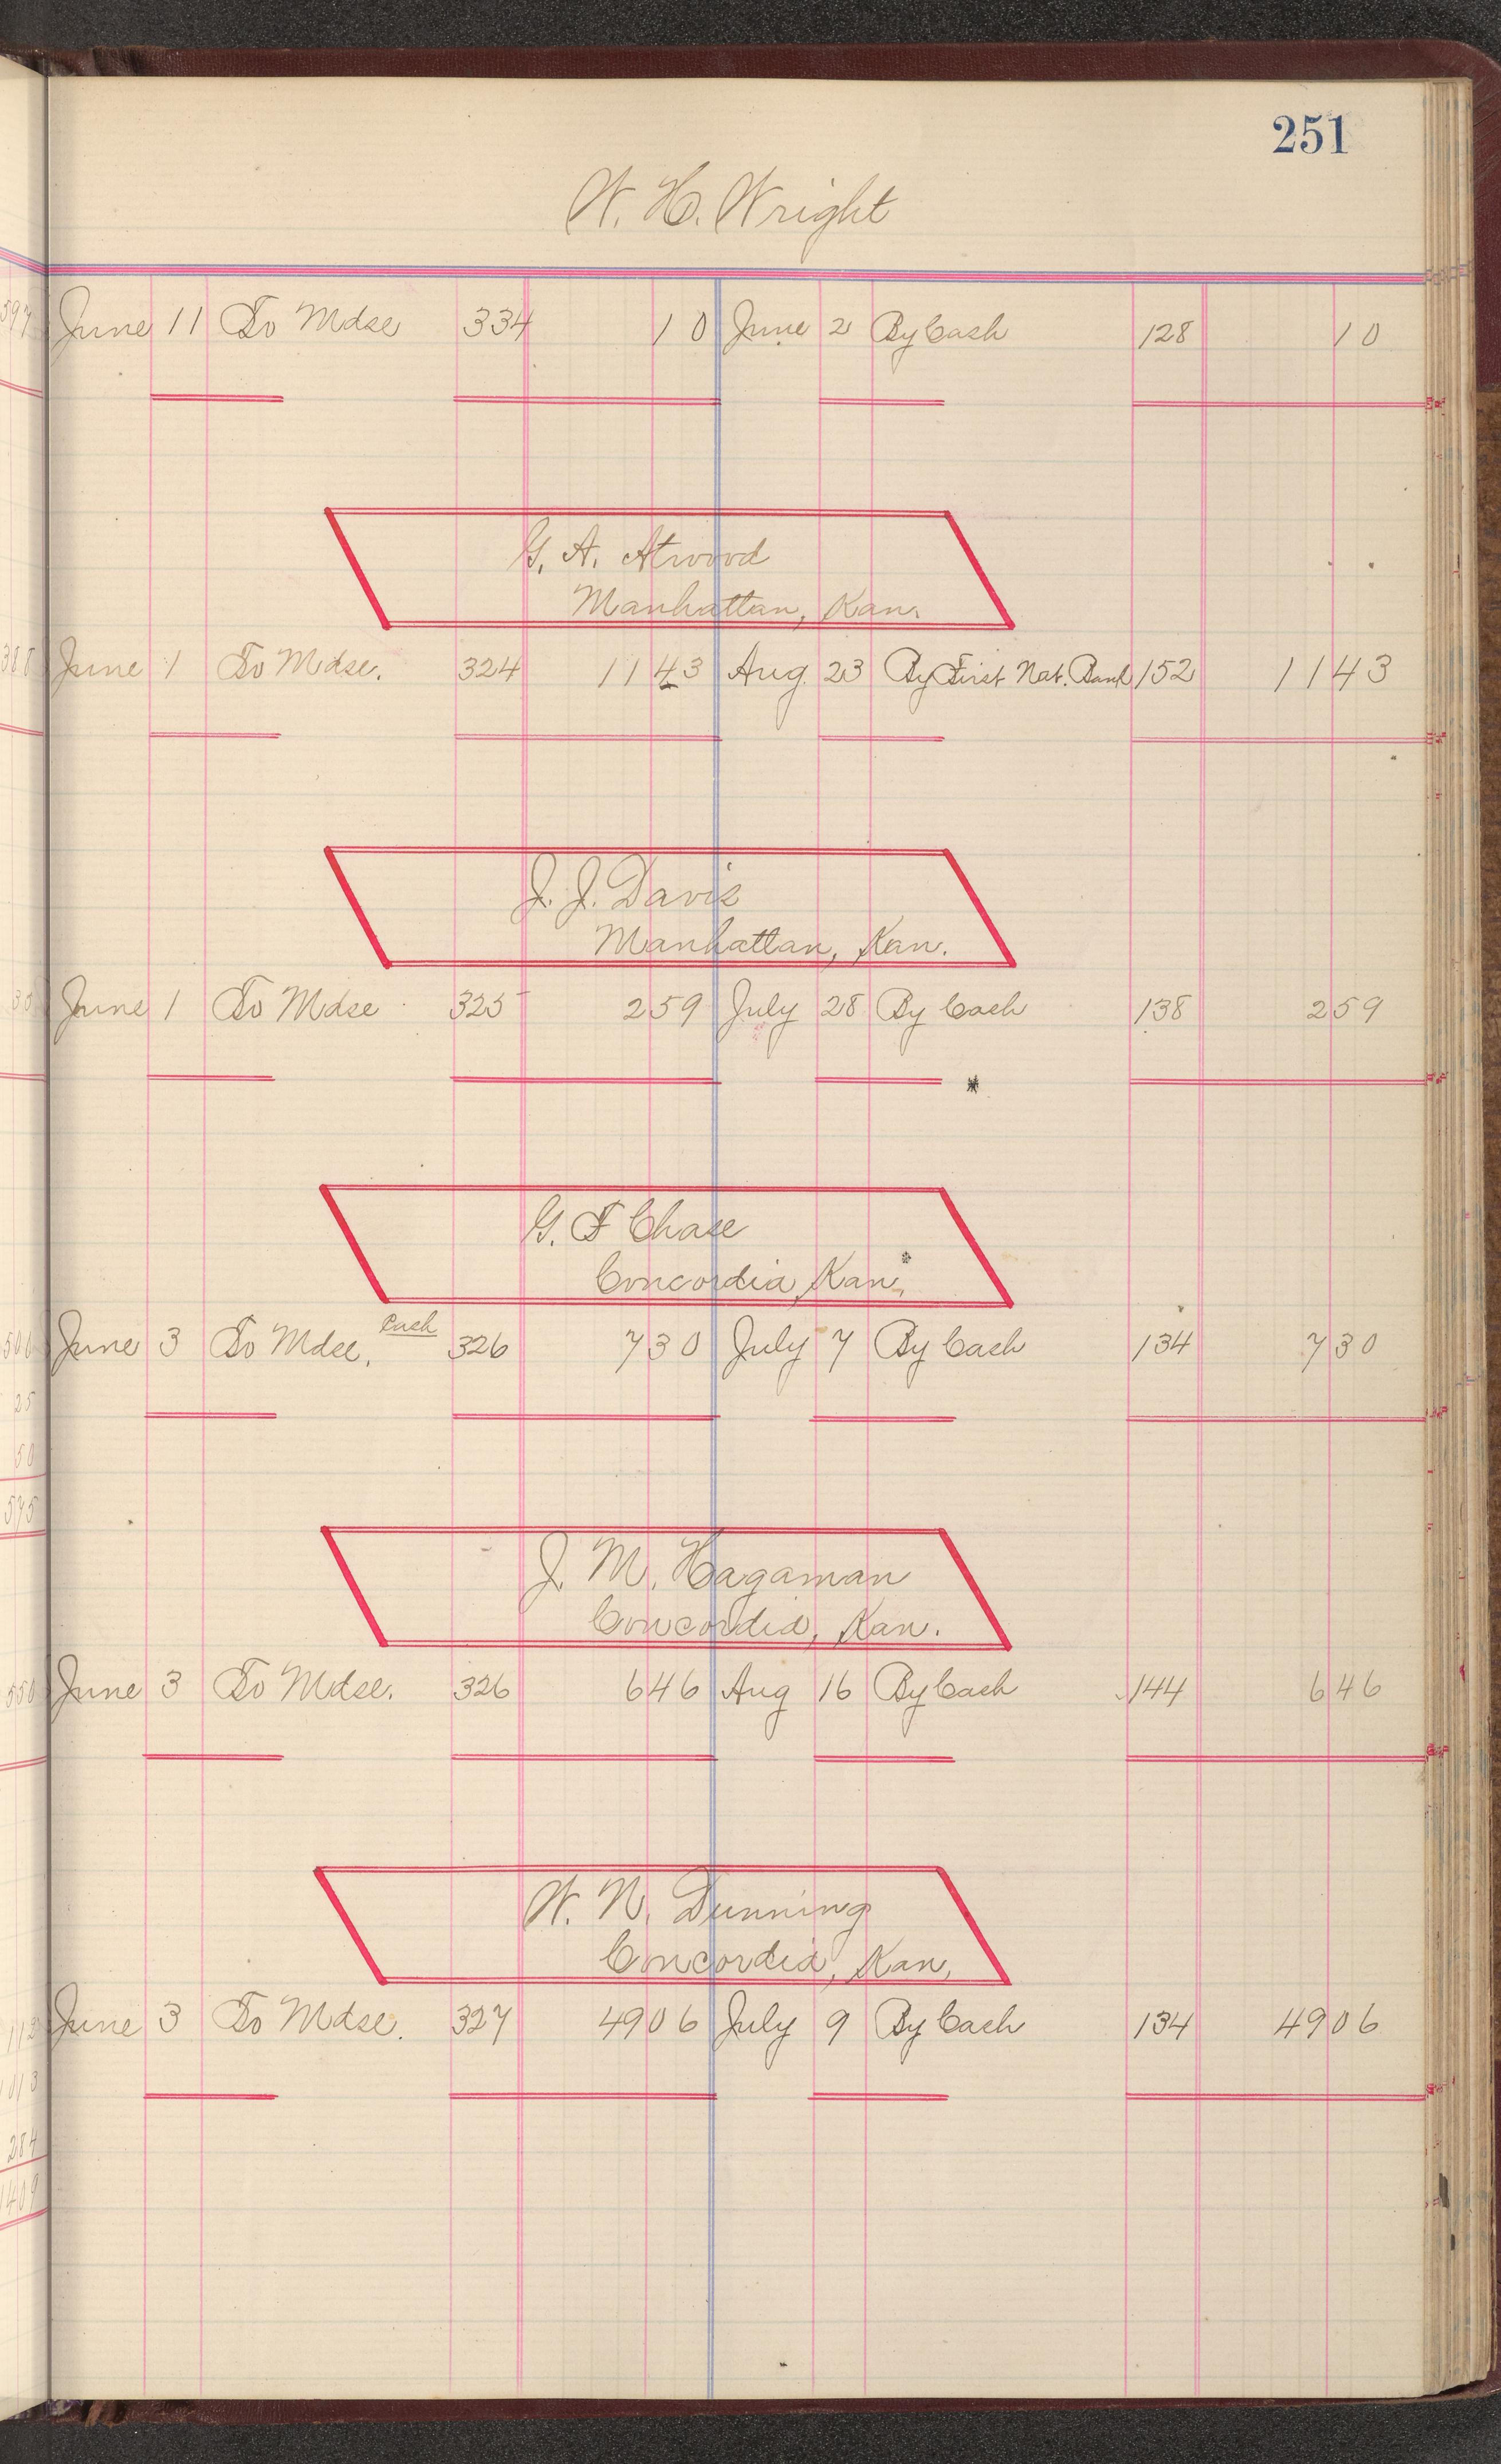 251
W. H. Wright
June 11 To Mdse 334 10 June 2 By Cash 128 10
G. A. Atwood
Manhattan, Kan.
June 1 To Mdse. 324 1143 Aug. 23 By First Nat. Bank 152 1143
J. J. Davis
Manhattan, Kan.
June 1 To Mdse 325 259 July 28 By Cash 138 259
G. T Chase
Concordia, Kan.
June 3 To Mdse. Cash 326 730 July 7 By Cash 134 730
J. M. Hagaman
Concordia, Kan.
June 3 To Mdse. 326 646 Aug 16 By Cash 144 646
W. N. Dunning
Concordia, Kan.
June 3 To Mdse. 327 4906 July 9 By Cash 134 4906